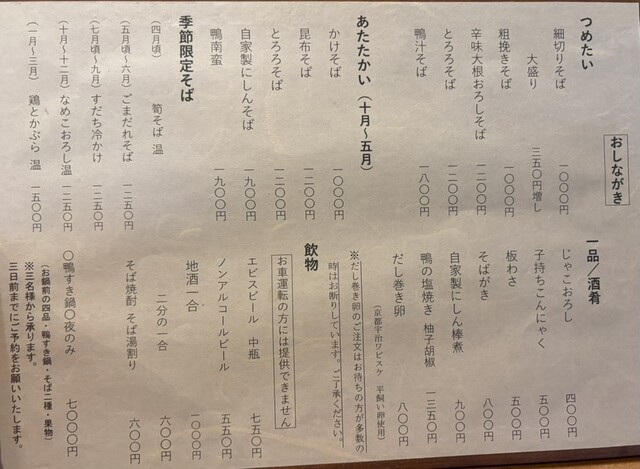 おしながき
つめたい
細切りそば 一〇〇〇円
大盛り 三五〇円増し
粗挽きそば 一〇〇〇円
辛味大根おろしそば 一二〇〇円
とろろそば 一二〇〇円
鴨汁そば 一八〇〇円
あたたかい(十月〜五月)
かけそば 一〇〇〇円
昆布そば 一二〇〇円
とろろそば 一二〇〇円
自家製にしんそば 一九〇〇円
鴨南蛮 一九〇〇円
季節限定そば
(四月頃) 筍そば 温
(五月頃〜六月)ごまだれそば 一二五〇円
(七月頃〜九月)すだち冷かけ 一二五〇円
(十月〜十二月)なめこおろし温 一二五〇円
(一月〜三月) 鶏とかぶら 温 一五〇〇円
一品/酒肴
じゃこおろし 四〇〇円
子持ちこんにゃく 五〇〇円
板わさ 五〇〇円
そばがき 八〇〇円
自家製にしん棒煮 九〇〇円
鴨の塩焼き 柚子胡椒 一三五〇円
だし巻き卵 八〇〇円
(京都宇治ワビスケ 平飼い卵使用)
※だし巻き卵のご注文はお待ちの方が多数の
時はお断りしています。ご了承ください。
飲物
お車運転の方には提供できません
エビスビール 中瓶 七五〇円
ノンアルコールビール 五五〇円
地酒一合 一〇〇〇円
二分の一合 六〇〇円
そば焼酎 そば湯割り 六〇〇円
〇鴨すき鍋〇夜のみ 七〇〇〇円
(お鍋前の四品・鴨すき鍋・そば二種・果物)
※三名様から承ります。
三日前までにご予約をお願いいたします。